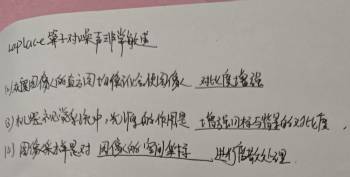 laplace算子对噪声非常敏感
灰度图像的直方图均衡化会使图像的 对比度增强
(3)机器视觉系统中,光源的作用是 增强目标与背景的对比度.
图像采样是对 图像的空间坐标 进行离散处理.